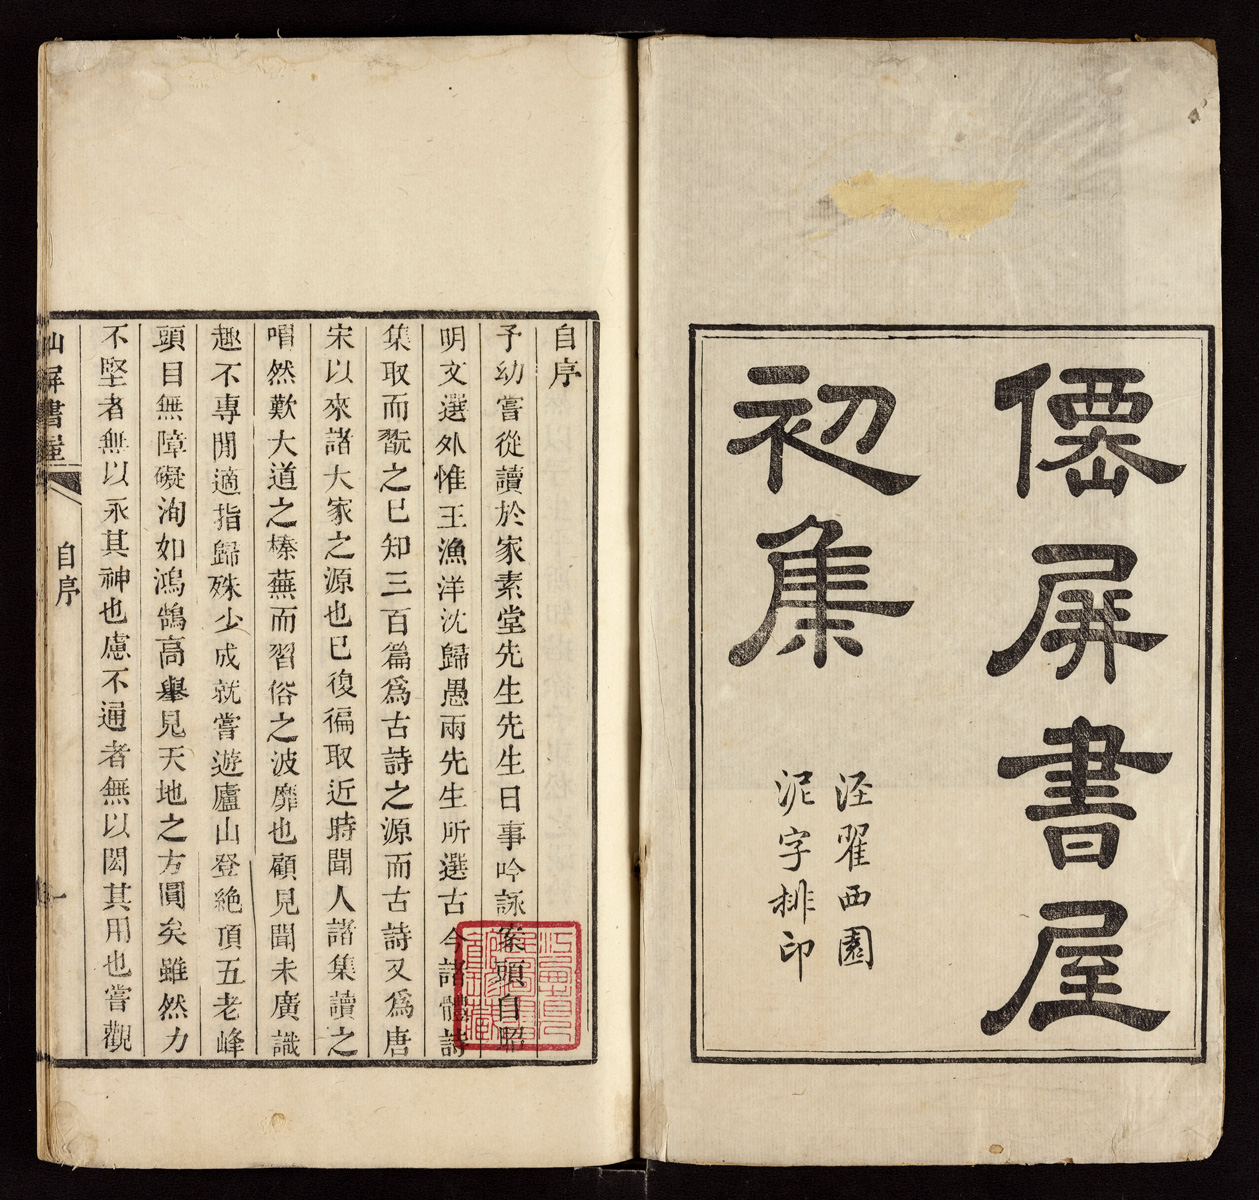 僊屏書屋
初集
涇翟西園
泥字排印
自序
予幼嘗從讀於家素堂先生先生日事吟詠案頭自昭
明文選外惟王漁洋沈歸愚兩先生所選古今諸體詩
集取而翫之已知三百篇爲古詩之源而古詩又爲唐
宋以來諸大家之源也已復徧取近時聞人諸集讀之
喟然歎大道之榛蕪而習俗之波靡也顧見聞未廣識
趣不專閒適指歸殊少成就嘗遊廬山登絶頂五老峰
頭目無障礙洵如鴻鵠高舉見天地之方圓矣雖然力
不堅者無以永其神也慮不通者無以閎其用也嘗觀
仙屏書屋
自序
一